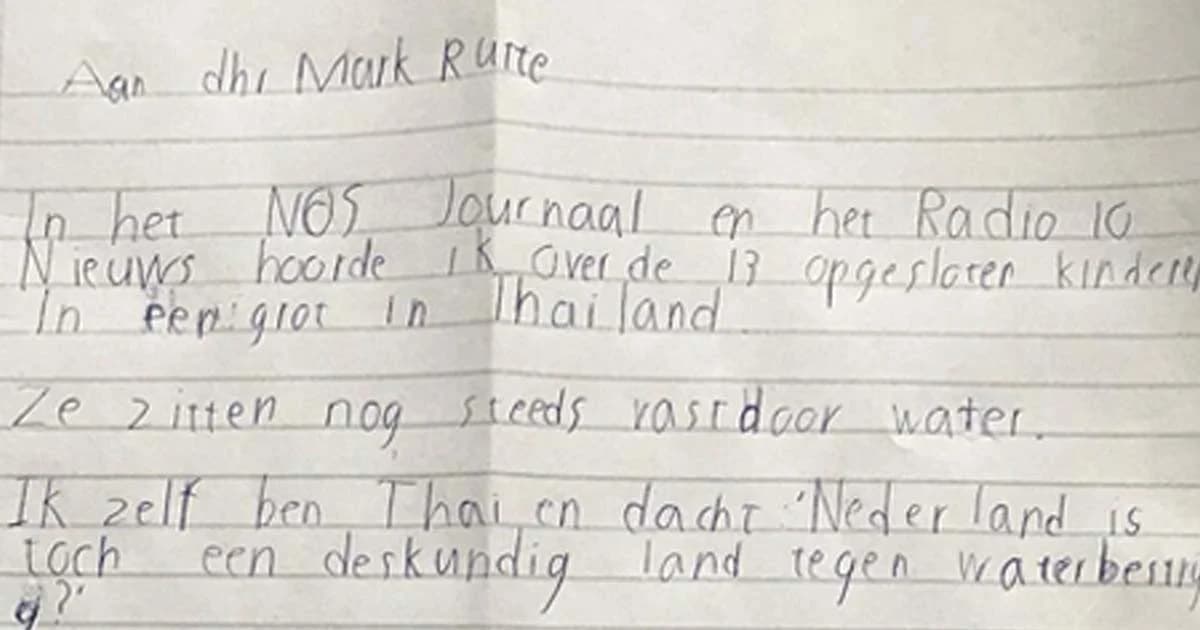 Aan dhr Mark Rutte
In het NOS Journaal en het Radio 10
Nieuws hoorde ik over de 13 opgesloten kinderen
in een grot in Thailand
Ze zitten nog steeds vast door water.
Ik zelf ben Thai en dacht 'Nederland is
toch een deskundig land tegen
g?'